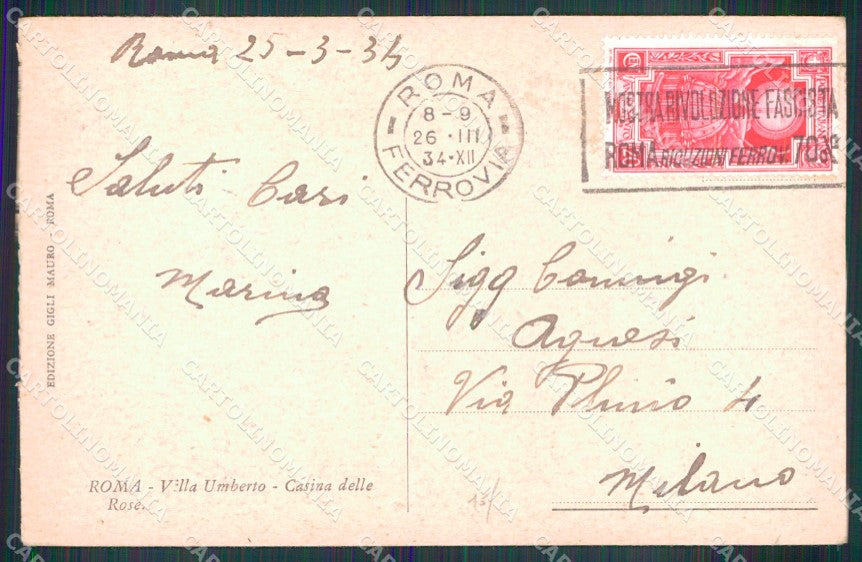 Roma 25-3-34
ROMA
8-9
26 · III
34·XII
FERROVIA
MOSTRA RIVOLUZIONE FASCISTA
ROMA RIDUZIONI FERROV. 70%
Saluti Cari
Marina
Sigg
Agnesi
Via Plinio 4
Milano
EDIZIONE GIGLI MAURO - ROMA
ROMA - Villa Umberto - Casina delle
Rose.
15/
CARTOLINOMANIA